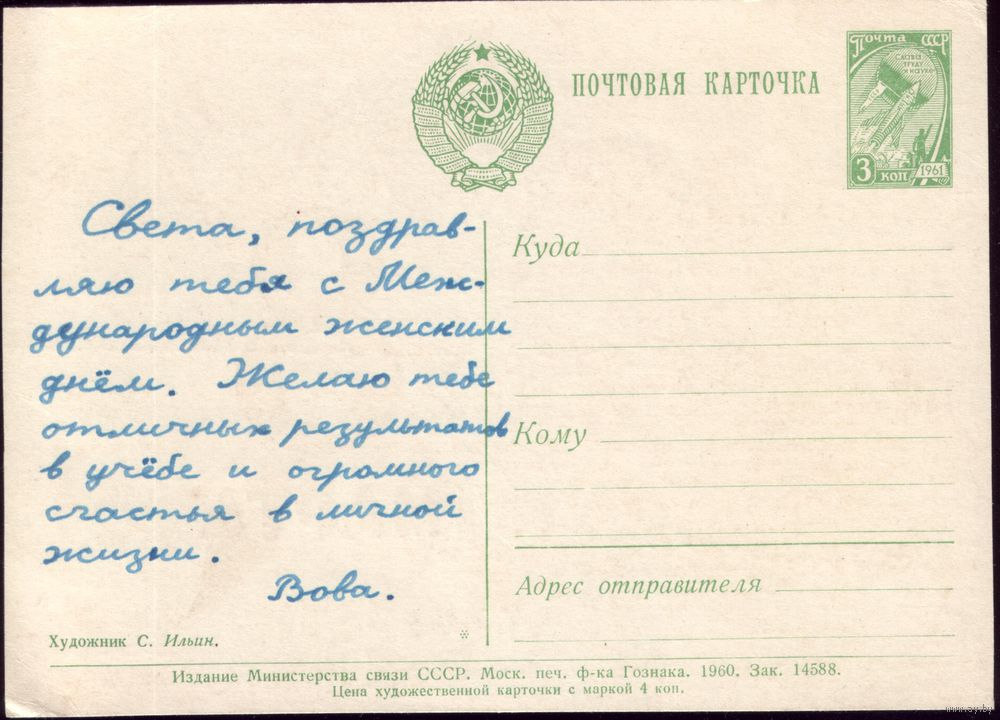 ПОЧТОВАЯ КАРТОЧКА
Почта СССР
СЛАВА
ТРУДУ
И НАУКЕ
3 КОП
1961
Света, поздрав-
ляю тебя с Меж-
дународным женским
днём. Желаю тебе
отличных результатов
в учёбе и огромного
счастья в личной
жизни.
Вова.
Куда
Кому
Адрес отправителя
Художник С. Ильин.
*
Издание Министерства связи СССР. Моск. печ. ф-ка Гознака. 1960. Зак. 14588.
Цена художественной карточки с маркой 4 коп.